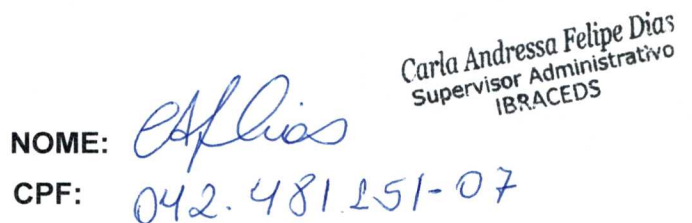 Carla Andressa Felipe Dias
Supervisor Administrativo
IBRACEDS
NOME: CAFDias
CPF: 042.481.251-07